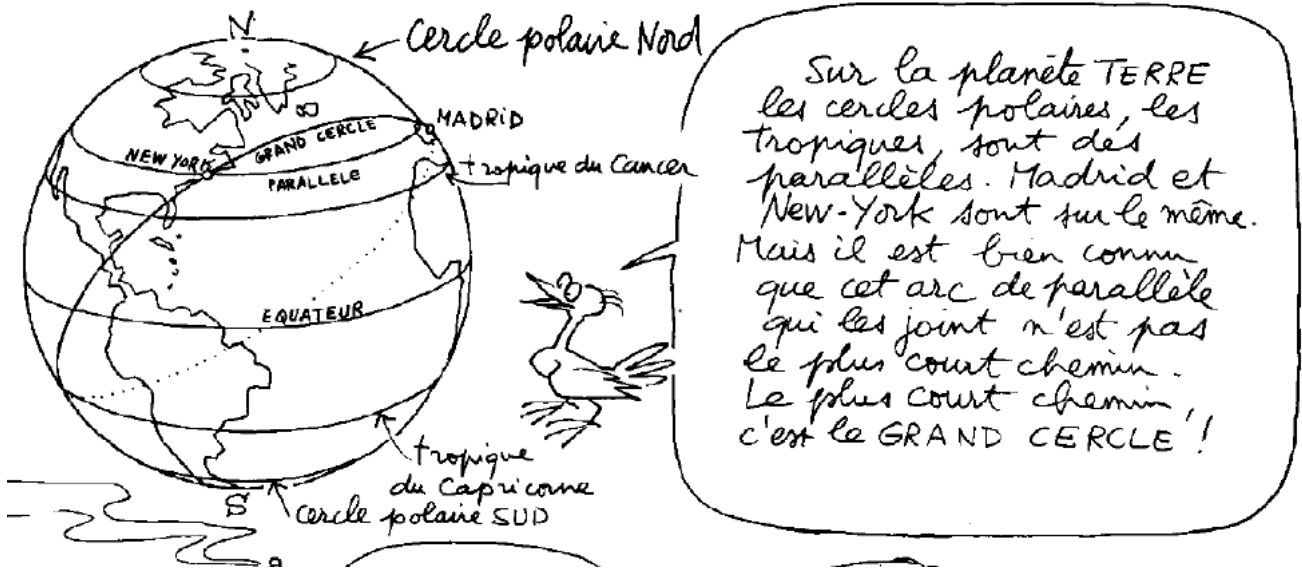 N
Cercle polaire Nord
MADRID
GRAND CERCLE
NEW YORK
PARALLELE
tropique du Cancer
EQUATEUR
tropique
du Capricorne
S
cercle polaire SUD
Sur la planète TERRE
les cercles polaires, les
tropiques, sont des
parallèles. Madrid et
New-York sont sur le même.
Mais il est bien connu
que cet arc de parallèle
qui les joint n'est pas
le plus court chemin.
Le plus court chemin,
c'est le GRAND CERCLE !